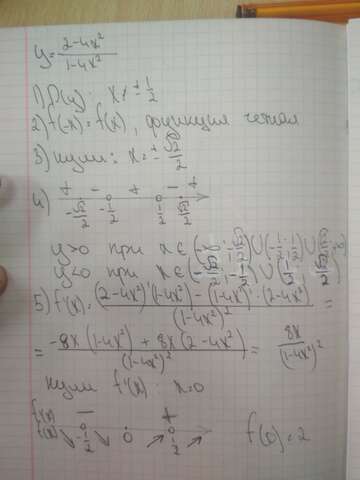 y = (2-4x²)/(1-4x²)
1) D(y): x ≠ ± 1/2
2) f(-x) = f(x), функция четная
3) нули: x = ± √2/2
4) + - + - +
-√2/2 -1/2 1/2 √2/2
y>0 при x∈(-∞; -√2/2)∪(-1/2; 1/2)∪(√2/2; +∞)
y<0 при x∈(-√2/2; -1/2)∪(1/2; √2/2)
5) f'(x) = ((2-4x²)'(1-4x²) - (1-4x²)'·(2-4x²))/(1-4x²)² =
= (-8x(1-4x²) + 8x(2-4x²))/(1-4x²)² = 8x/(1-4x²)²
нули f'(x): x=0
f'(x) - +
f(x) ↘ -1/2 ↘ 0 ↗ 1/2 ↗ f(0) = 2